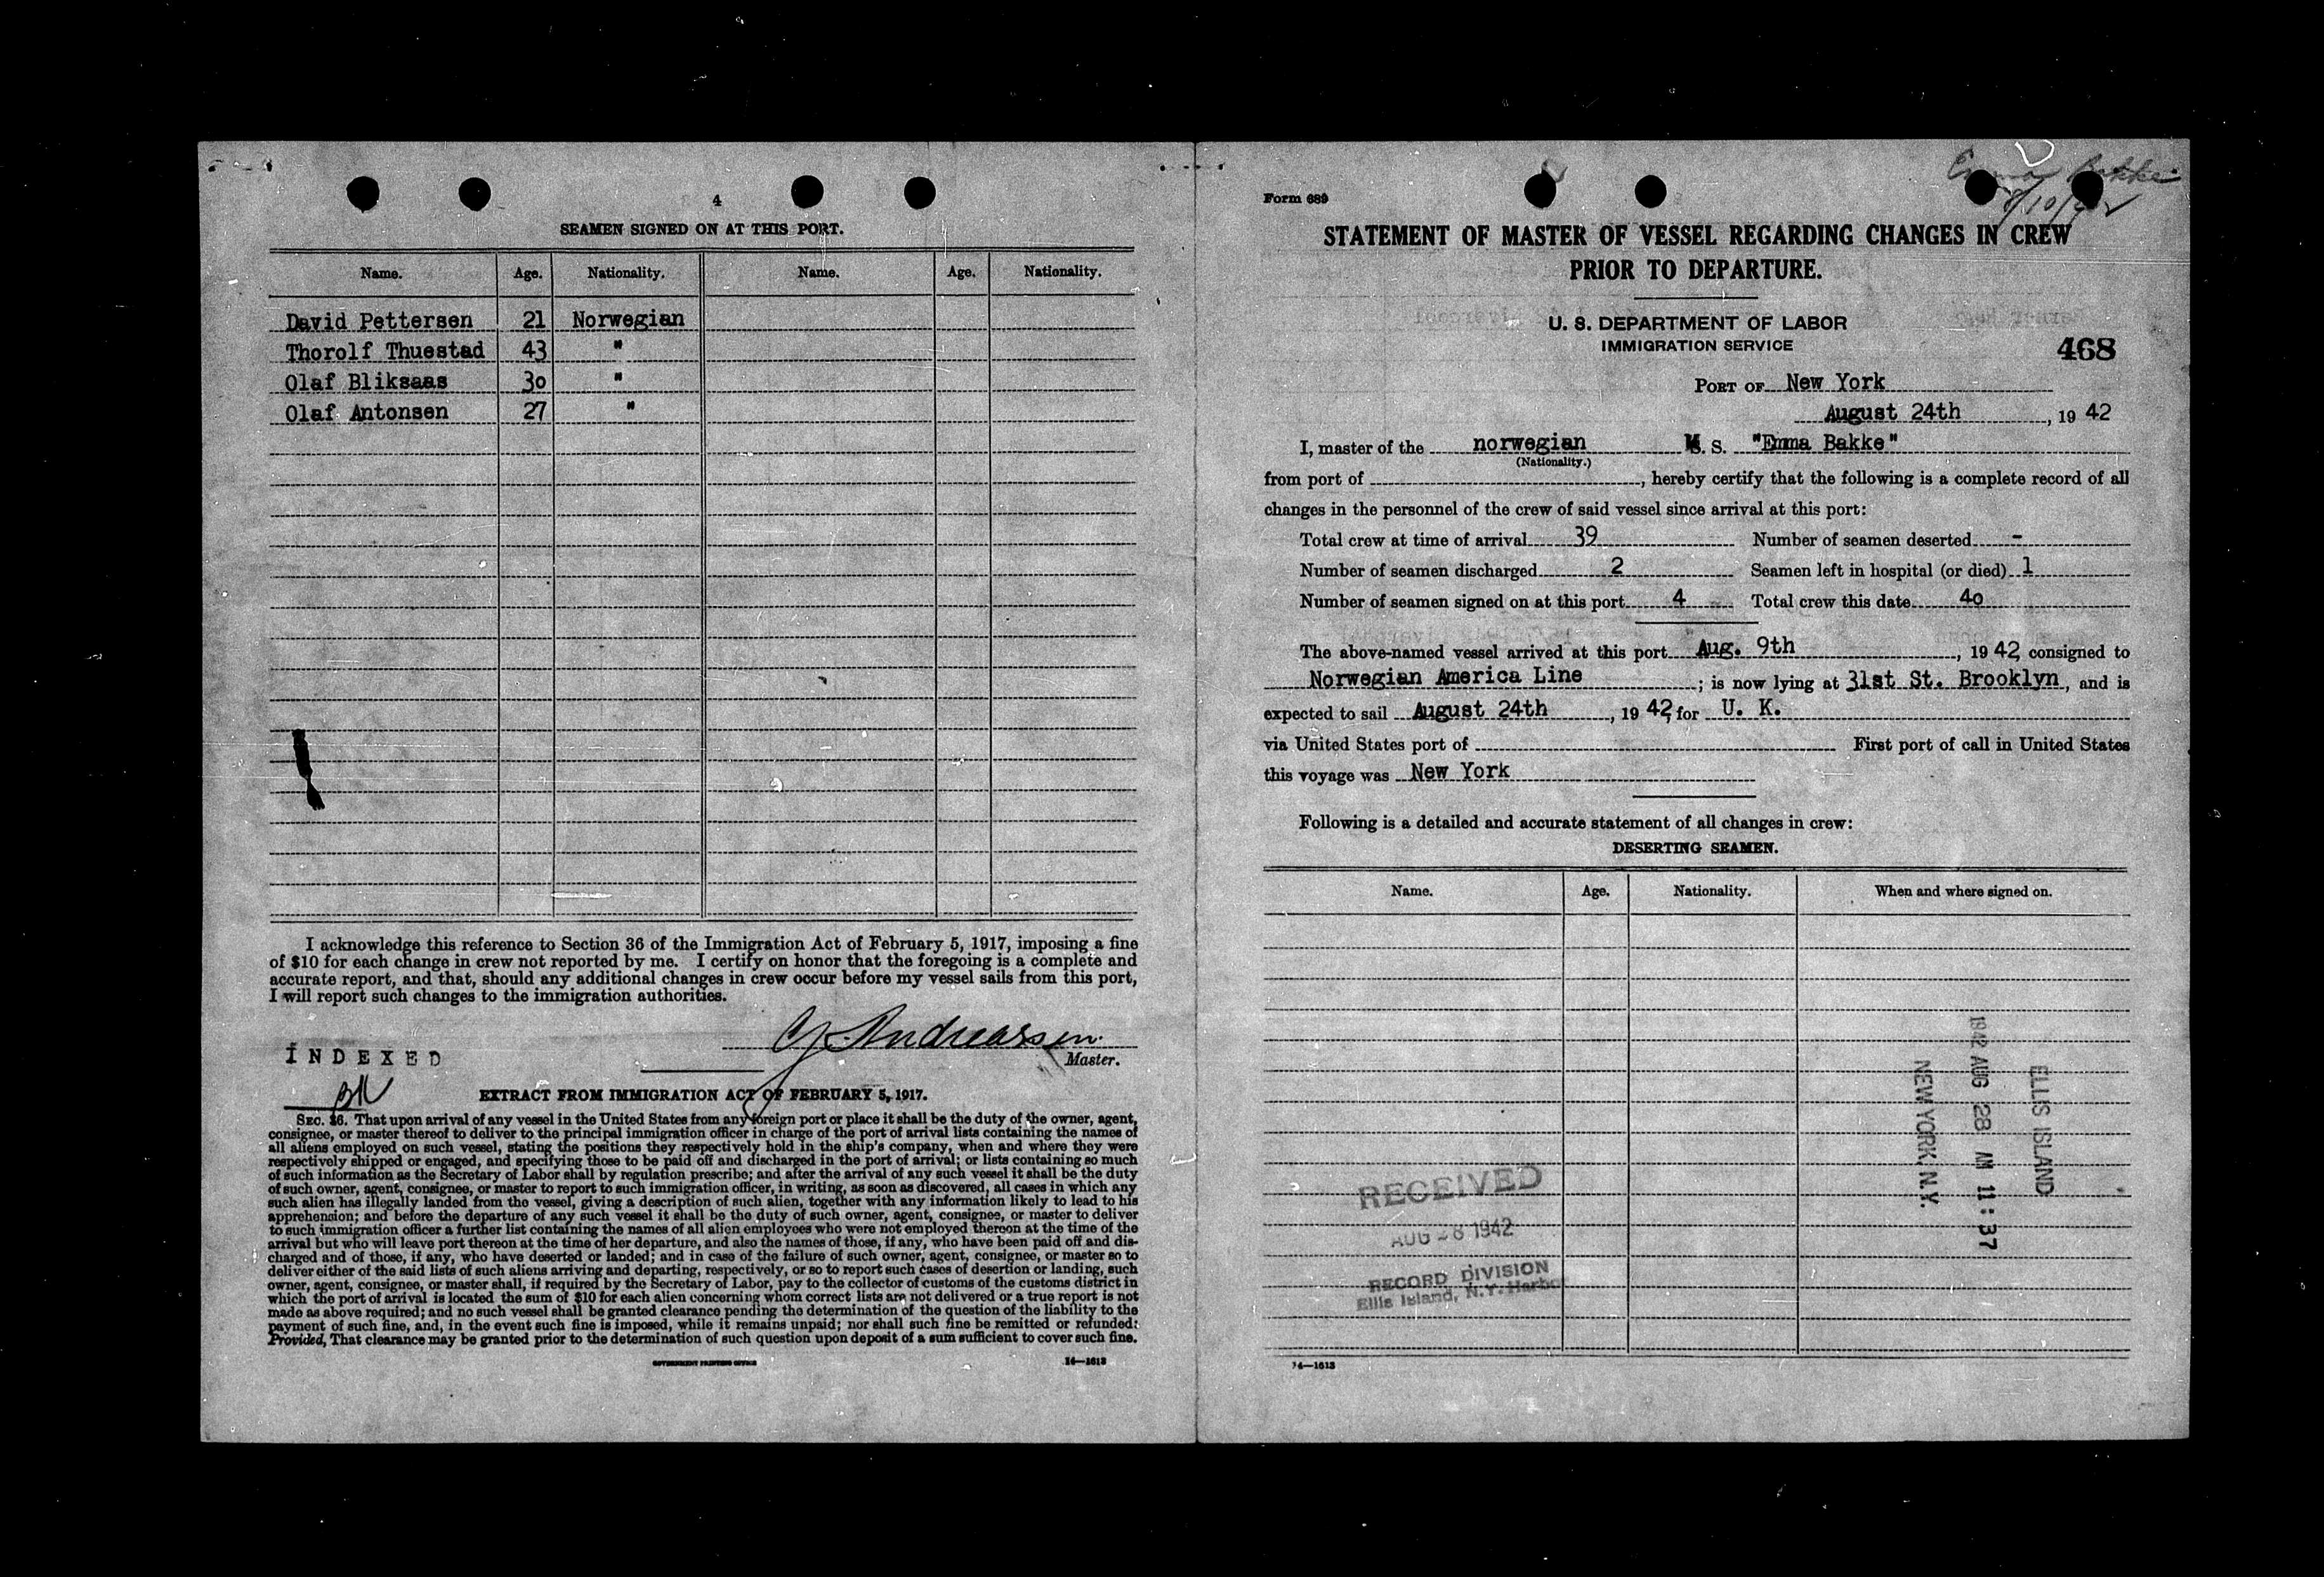 4
SEAMEN SIGNED ON AT THIS PORT.
Name. Age. Nationality. Name. Age. Nationality.
David Pettersen 21 Norwegian
Thorolf Thuestad 43 "
Olaf Bliksaas 30 "
Olaf Antonsen 27 "
I acknowledge this reference to Section 36 of the Immigration Act of February 5, 1917, imposing a fine
of $10 for each change in crew not reported by me. I certify on honor that the foregoing is a complete and
accurate report, and that, should any additional changes in crew occur before my vessel sails from this port,
I will report such changes to the immigration authorities.
Andreassen
INDEXED
Master.
BK
EXTRACT FROM IMMIGRATION ACT OF FEBRUARY 5, 1917.
SEC. 36. That upon arrival of any vessel in the United States from any foreign port or place it shall be the duty of the owner, agent,
consignee, or master thereof to deliver to the principal immigration officer in charge of the port of arrival lists containing the names of
all aliens employed on such vessel, stating the positions they respectively hold in the ship's company, when and where they were
respectively shipped or engaged, and specifying those to be paid off and discharged in the port of arrival; or lists containing so much
of such information as the Secretary of Labor shall by regulation prescribe; and after the arrival of any such vessel it shall be the duty
of such owner, agent, consignee, or master to report to such immigration officer, in writing, as soon as discovered, all cases in which any
such alien has illegally landed from the vessel, giving a description of such alien, together with any information likely to lead to his
apprehension; and before the departure of any such vessel it shall be the duty of such owner, agent, consignee, or master to deliver
to such immigration officer a further list containing the names of all alien employees who were not employed thereon at the time of the
arrival but who will leave port thereon at the time of her departure, and also the names of those, if any, who have been paid off and dis-
charged and of those, if any, who have deserted or landed; and in case of the failure of such owner, agent, consignee, or master so to
deliver either of the said lists of such aliens arriving and departing, respectively, or so to report such cases of desertion or landing, such
owner, agent, consignee, or master shall, if required by the Secretary of Labor, pay to the collector of customs of the customs district in
which the port of arrival is located the sum of $10 for each alien concerning whom correct lists are not delivered or a true report is not
made as above required; and no such vessel shall be granted clearance pending the determination of the question of the liability to the
payment of such fine, and, in the event such fine is imposed, while it remains unpaid; nor shall such fine be remitted or refunded:
Provided, That clearance may be granted prior to the determination of such question upon deposit of a sum sufficient to cover such fine.
GOVERNMENT PRINTING OFFICE 14—1613
Emma Bakke
8/10/42
Form 689
STATEMENT OF MASTER OF VESSEL REGARDING CHANGES IN CREW
PRIOR TO DEPARTURE.
U. S. DEPARTMENT OF LABOR
IMMIGRATION SERVICE
468
PORT OF New York
August 24th, 19 42
I, master of the norwegian M. S. "Emma Bakke"
(Nationality.)
from port of , hereby certify that the following is a complete record of all
changes in the personnel of the crew of said vessel since arrival at this port:
Total crew at time of arrival 39 Number of seamen deserted -
Number of seamen discharged 2 Seamen left in hospital (or died) 1
Number of seamen signed on at this port 4 Total crew this date 40
The above-named vessel arrived at this port Aug. 9th, 19 42, consigned to
Norwegian America Line; is now lying at 31st St. Brooklyn, and is
expected to sail August 24th, 19 42, for U. K.
via United States port of First port of call in United States
this voyage was New York
Following is a detailed and accurate statement of all changes in crew:
DESERTING SEAMEN.
Name. Age. Nationality. When and where signed on.
ELLIS ISLAND
1942 AUG 28 AM 11:37
NEW YORK, N.Y.
RECEIVED
AUG 28 1942
RECORD DIVISION
Ellis Island, N.Y. Harbor
14—1613